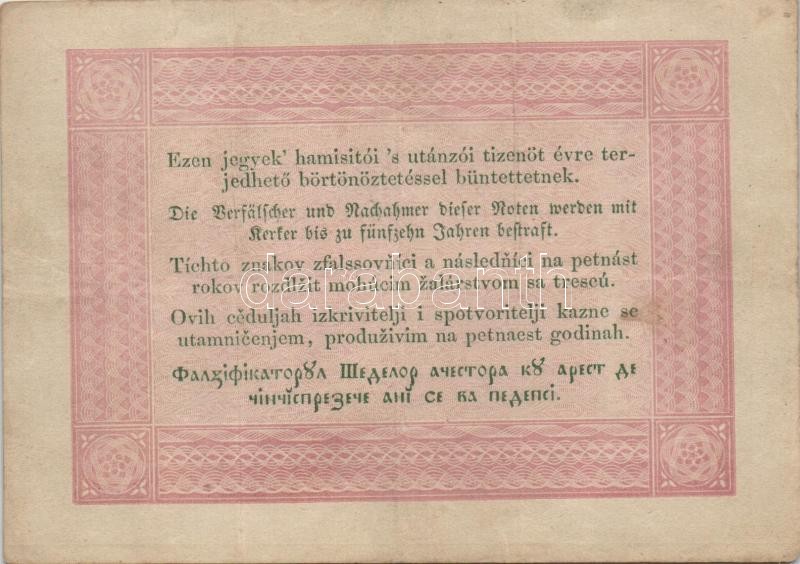 Ezen jegyek’ hamisitói ’s utánzói tizenöt évre ter-
jedhető börtönöztetéssel büntettetnek.
Die Verfälscher und Nachahmer dieser Noten werden mit
Kerker bis zu fünfzehn Jahren bestraft.
Tíchto znakov zfalssovňíci a následňíci na petnást
rokov rozdlžit mohúcim žalárstvom sa trescú.
Ovih cěduljah izkrivitelji i spotvoritelji kazne se
utamničenjem, produživim na petnaest godinah.
Фалꙃіфікаторꙋл Шеделор ачестора кꙋ арест де
чінчіспрезече ані се ва педепсі.
darabanth